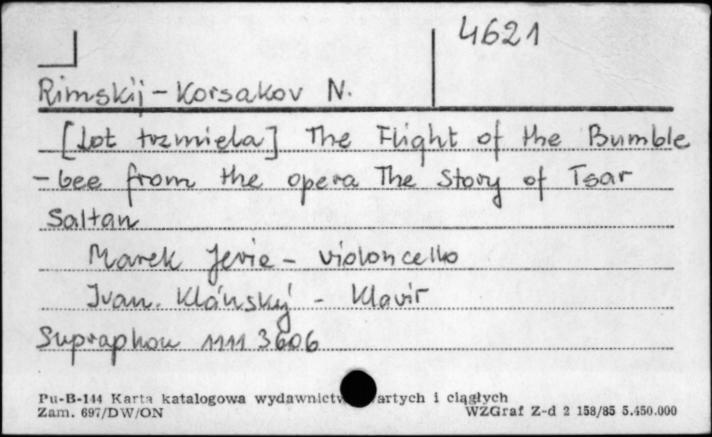 4621
Rimskij - Korsakov N.
[Lot trzmiela] The Flight of the Bumble
- bee from the opera The Story of Tsar
Saltan
Marek Jerie - violoncello
Ivan Klánský - Klavír
Supraphon 1111 3606
Pu-B-144 Karta katalogowa wydawnictw artych i ciągłych
Zam. 697/DW/ON WZGraf Z-d 2 158/85 5.450.000